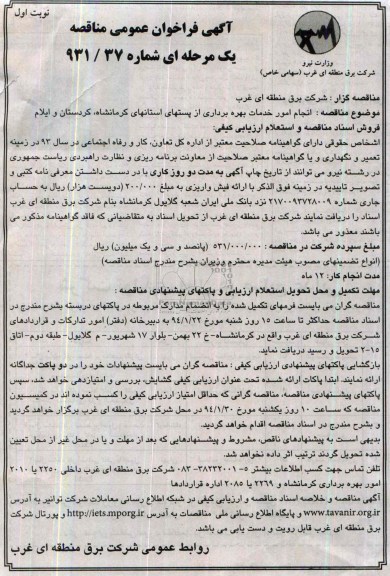 نوبت اول
آگهی فراخوان عمومی مناقصه
یک مرحله ای شماره ۳۷ / ۹۳۱
وزارت نیرو
شرکت برق منطقه ای غرب (سهامی خاص)
مناقصه گزار : شرکت برق منطقه ای غرب
موضوع مناقصه : انجام امور خدمات بهره برداری از پستهای استانهای کرمانشاه، کردستان و ایلام
فروش اسناد مناقصه و استعلام ارزیابی کیفی:
اشخاص حقوقی دارای گواهینامه صلاحیت معتبر از اداره کل تعاون، کار و رفاه اجتماعی در سال ۹۳ در زمینه
تعمیر و نگهداری و یا گواهینامه معتبر صلاحیت از معاونت برنامه ریزی و نظارت راهبردی ریاست جمهوری
در رشته نیرو می توانند از تاریخ چاپ آگهی به مدت دو روز کاری با در دست داشتن معرفی نامه کتبی و
تصویر تاییدیه در زمینه فوق الذکر با ارائه فیش واریزی به مبلغ ۲۰۰/۰۰۰ (دویست هزار) ریال به حساب
جاری شماره ۲۱۷۰۰۹۳۷۲۸۰۰۹ نزد بانک ملی ایران شعبه گلایول کرمانشاه بنام شرکت برق منطقه ای غرب
اسناد را دریافت نمایند شرکت برق منطقه ای غرب از تحویل اسناد به متقاضیانی که فاقد گواهینامه مذکور می
باشند معذور می باشد.
مبلغ سپرده شرکت در مناقصه : ۵۳۱/۰۰۰/۰۰۰ (پانصد و سی و یک میلیون) ریال
(انواع تضمینهای مصوب هیئت مدیره محترم وزیران بشرح مندرج اسناد مناقصه)
مدت انجام کار: ۱۲ ماه
مهلت تکمیل و محل تحویل استعلام ارزیابی و پاکتهای پیشنهادی مناقصه :
مناقصه گران می بایست فرمهای تکمیل شده را به انضمام مدارک مربوطه در پاکتهای دربسته بشرح مندرج در
اسناد مناقصه حداکثر تا ساعت ۱۵ روز شنبه مورخ ۹۴/۱/۲۲ به دبیرخانه (دفتر) امور تدارکات و قراردادهای
شرکت برق منطقه ای غرب واقع در کرمانشاه- خ ۲۲ بهمن- بلوار ۱۷ شهریور- م گلایول- طبقه دوم- اتاق
۲-۱۵ تحویل و رسید دریافت نمایند.
بازگشایی پاکتهای پیشنهادی ارزیابی کیفی : مناقصه گران می بایست پیشنهادات خود را در دو پاکت جداگانه
ارائه نمایند. ابتدا پاکات ارائه شده تحت عنوان ارزیابی کیفی گشایش، بررسی و امتیازدهی خواهد شد، سپس
پاکتهای پیشنهادی مناقصه، مناقصه گرانی که حداقل امتیاز ارزیابی کیفی را کسب نموده اند در کمیسیون
مناقصه که ساعت ۱۰ روز یکشنبه مورخ ۹۴/۱/۳۰ در محل شرکت برق منطقه ای غرب برگزار خواهد گردید
و بشرح مندرج در اسناد مناقصه اقدام خواهد گردید.
بدیهی است به پیشنهادهای ناقص، مشروط و پیشنهادهایی که بعد از مهلت و یا در محل غیر از محل تعیین
شده تحویل گردند ترتیب اثر داده نخواهد شد.
تلفن تماس جهت کسب اطلاعات بیشتر ۵- ۳۸۲۳۲۰۰۱- ۰۸۳ شرکت برق منطقه ای غرب داخلی ۲۲۵۰ یا ۲۰۱۰
امور بهره برداری کرمانشاه و ۲۲۶۹ یا ۲۰۸۵ اداره قراردادها
آگهی مناقصه و خلاصه اسناد مناقصه و ارزیابی کیفی در شبکه اطلاع رسانی معاملات شرکت توانیر به آدرس
www.tavanir.org.ir و پایگاه اطلاع رسانی ملی مناقصات به آدرس http://iets.mporg.ir و پورتال شرکت
برق منطقه ای غرب قابل رویت و دست یابی می باشد.
روابط عمومی شرکت برق منطقه ای غرب